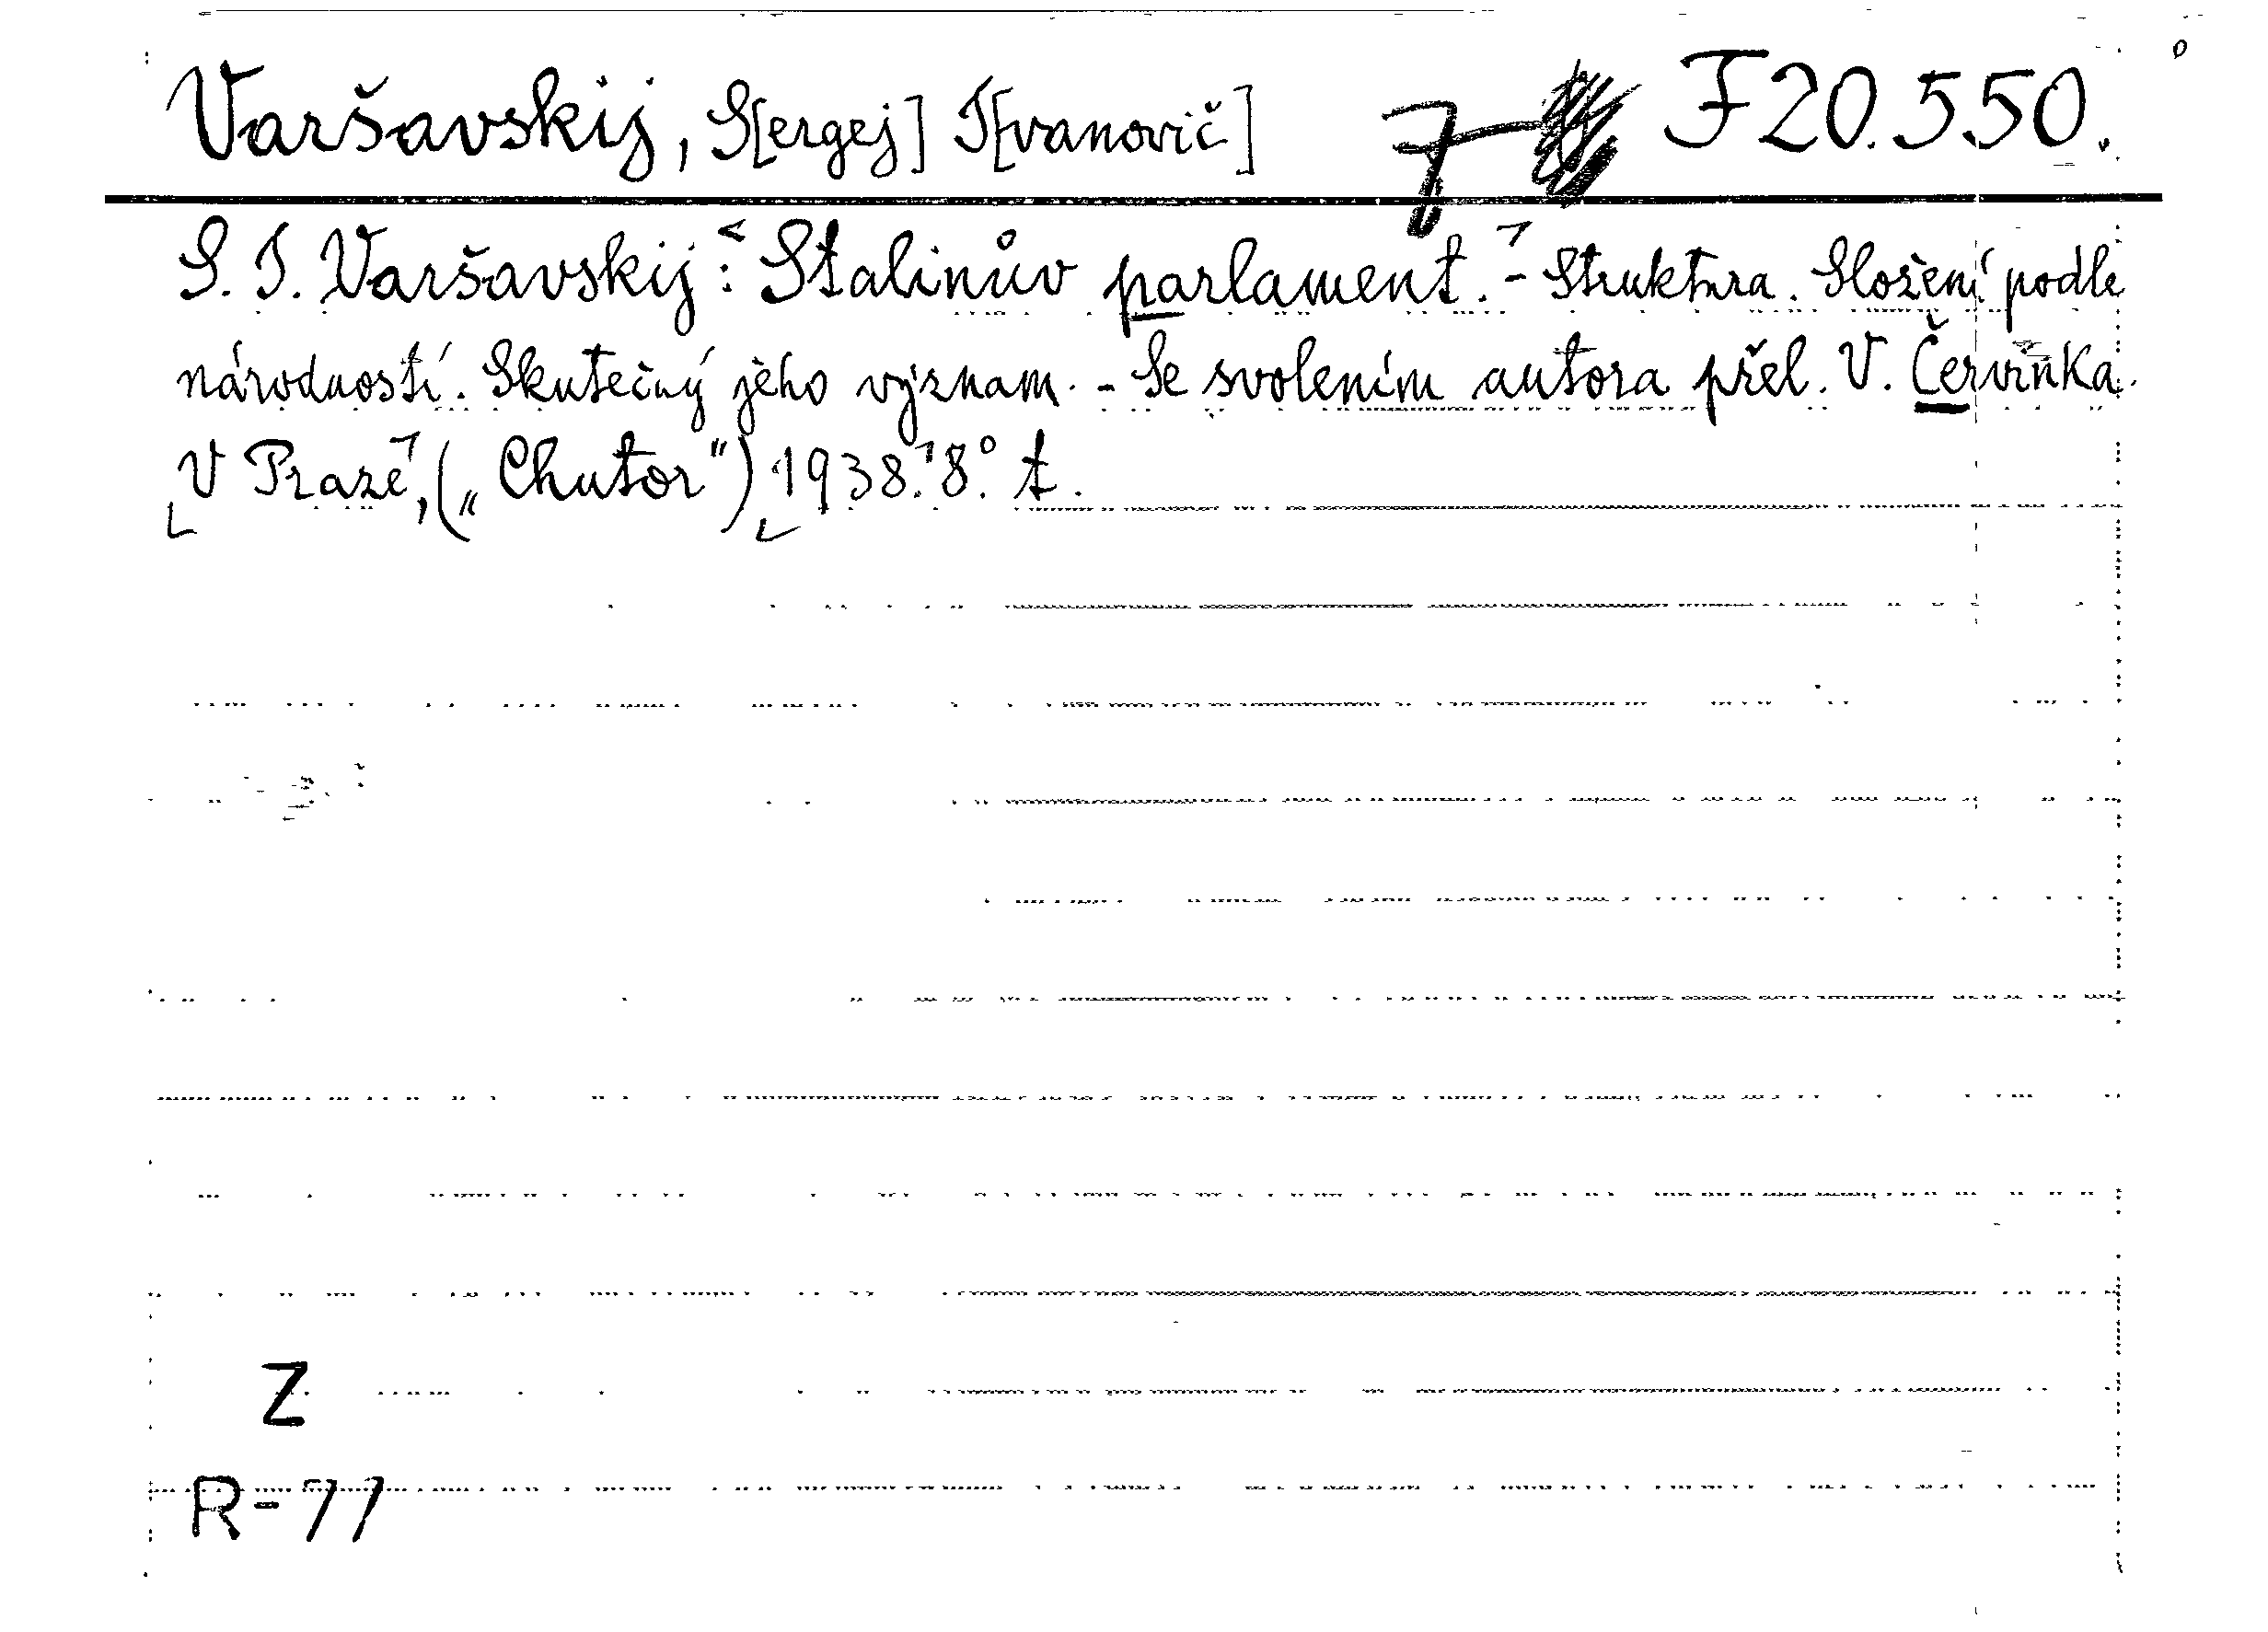 Varšavskij, S[ergej] I[vanovič] 7 F 20.550.
S. I. Varšavskij: Stalinův parlament. - Struktura. Složení podle
národností. Skutečný jeho význam. - Se svolením autora přel. V. Červinka.
V Praze, („Chutor") 1938. 8° t.
Z
R-77